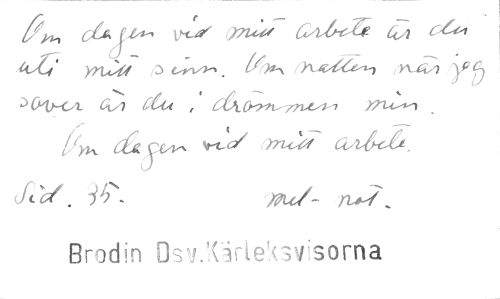 Om dagen vid mitt arbete är du
uti mitt sinn. Om natten när jag
sover är du i drömmen min.
Om dagen vid mitt arbete.
Sid. 35.    mel- not.
Brodin Dsv.Kärleksvisorna